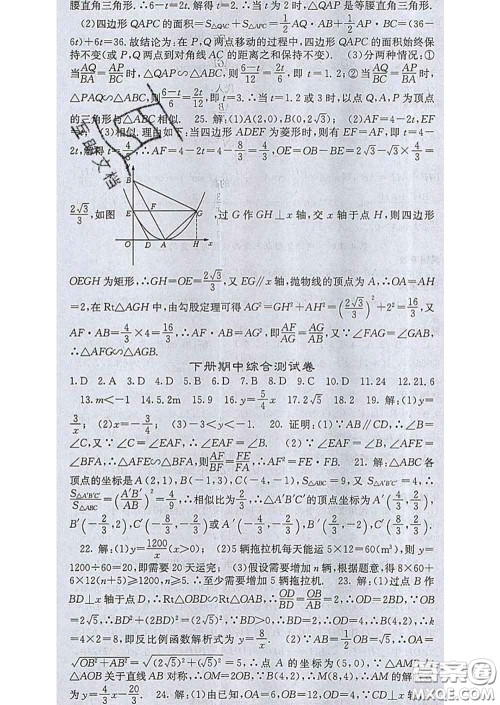 腰直角三角形.∴6-t=2t.解得t=2.∴当t为2时,△QAP是等腰直角三角形.
(2)四边形QAPC的面积=S△QAC+S△APC=1/2AQ·AB+1/2AP·BC=(36-
6t)+6t=36.故结论为:在P,Q两点移动的过程中,四边形QAPC的面积始终保
持不变(或P,Q两点到对角线AC的距离之和保持不变). (3)分两种情况:①
当AQ/BA=AP/BC时,△QAP∽△ABC,则6-t/12=2t/6,即t=1.2;②当AQ/BC=AP/BA时,
△PAQ∽△ABC,则6-t/6=2t/12,即t=3.∴当t=1.2或3时,以点Q,A,P为顶点
的三角形与△ABC相似. 25. 解:(1)A(2,0),B(0,2√3). (2)AF=4-2t,EF
(3)相似.理由如下:当四边形ADEF为菱形时,则有EF=AF,即t=4-
2t.解得t=4/3,∴AF=4-2t=4-8/3=4/3,OE=OB-BE=2√3-√3×4/3=
2√3/3,如图
B
E
F
G
O
D
A
H
x
,过G作GH⊥x轴,交x轴于点H,则四边形
OEGH为矩形,∴GH=OE=2√3/3,又EG∥x轴,抛物线的顶点为A,∴OA=AH
=2,在Rt△AGH中,由勾股定理可得AG²=GH²+AH²=(2√3/3)²+2²=16/3,又
AF·AB=4/3×4=16/3,∴AF·AB=AG²,即AF/AG=AG/AB,又∵∠FAG=∠GAB,
∴△AFG∽△AGB.
下册期中综合测试卷
1.D 2.A 3.D 4.D 5.D 6.B 7.D 8.B 9.C 10.D 11.24 12.21,6
13.m<-1 14.5.2m 15.9 16.y=5/4x 17.2√5 18.2 19.解:(1)y=-
3/x; (2)x=-3/4; (3)-3<y<-1. 20. 证明:(1)∵AB∥CD,∴∠B=
∠C,又∵∠C=∠EAF,∴∠EAF=∠B. (2)∵∠EAF=∠B,∠AFE=
∠BFA,∴△EAF∽△ABF,则AF/BF=FE/FA,∴AF²=FE·FB. 21. 解:△ABC各
顶点的坐标是A(2,1),B(-1,3),C(-4,-1),∵△ABC∽△A'B'C',∴
S△A'B'C'/S△ABC=(A'B'/AB)²=4/9,∴相似比为2/3,∴△A'B'C'的顶点坐标为A'(4/3,2/3),
B'(-2/3,2),C'(-8/3,-2/3)或A'(-4/3,-2/3),B'(2/3,-2),C'(8/3,2/3).
22. 解:(1)y=1200/x(x>0); (2)5辆拖拉机每天能运5×12=60(m³),则y=
1200÷60=20,即需要20天运完; (3)假设需要增加n辆,根据题意,得8×60+
6×12(n+5)≥1200,n≥5.∴至少需要增加5辆拖拉机. 23. 解:(1)过点B作
BD⊥x轴于点D,∴Rt△OBD∽Rt△ABO,∴OD/BD=OB/AB=2,∴OD=2DB,OB
=2√5,∴BD²+(2BD)²=(2√5)².∵BD>0,∴BD=2,∴OD=4,∴B(4,2),∴
k=4×2=8,即反比例函数解析式为y=8/x. (2)∵AB=1/2OB=√5,∴OA=
√OB²+AB²=√(2√5)²+(√5)²=5,∴点A的坐标为(5,0),∵△AMB
△AOB关于直线AB对称,∴OM=2OB,∵B(4,2),∴M(8,4),∴AM的解析
为y=4/3x-20/3. 24. 解:(1)由已知,OA=6,OB=12,OD=4,∵CD⊥x轴,